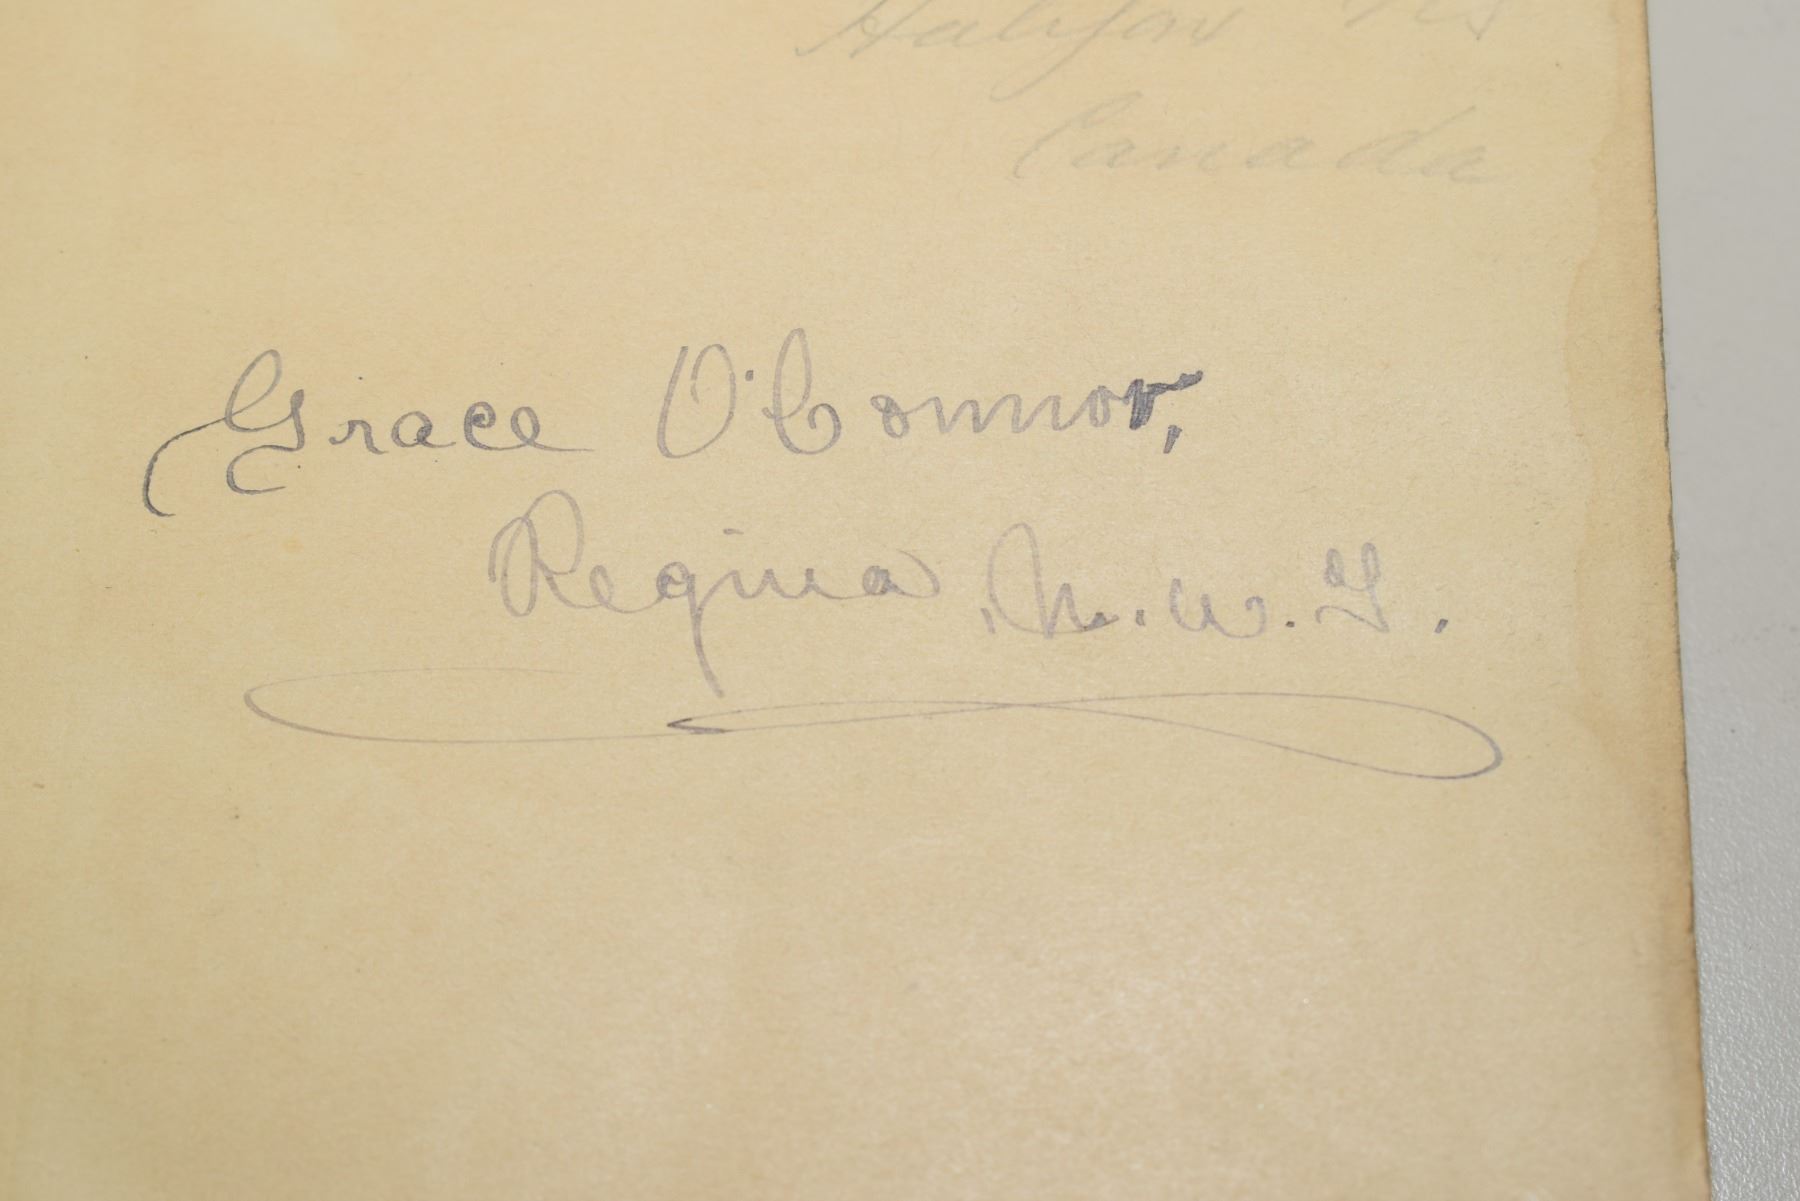 Halifax NS
Canada
Grace O'Connor,
Regina, N.W.T.